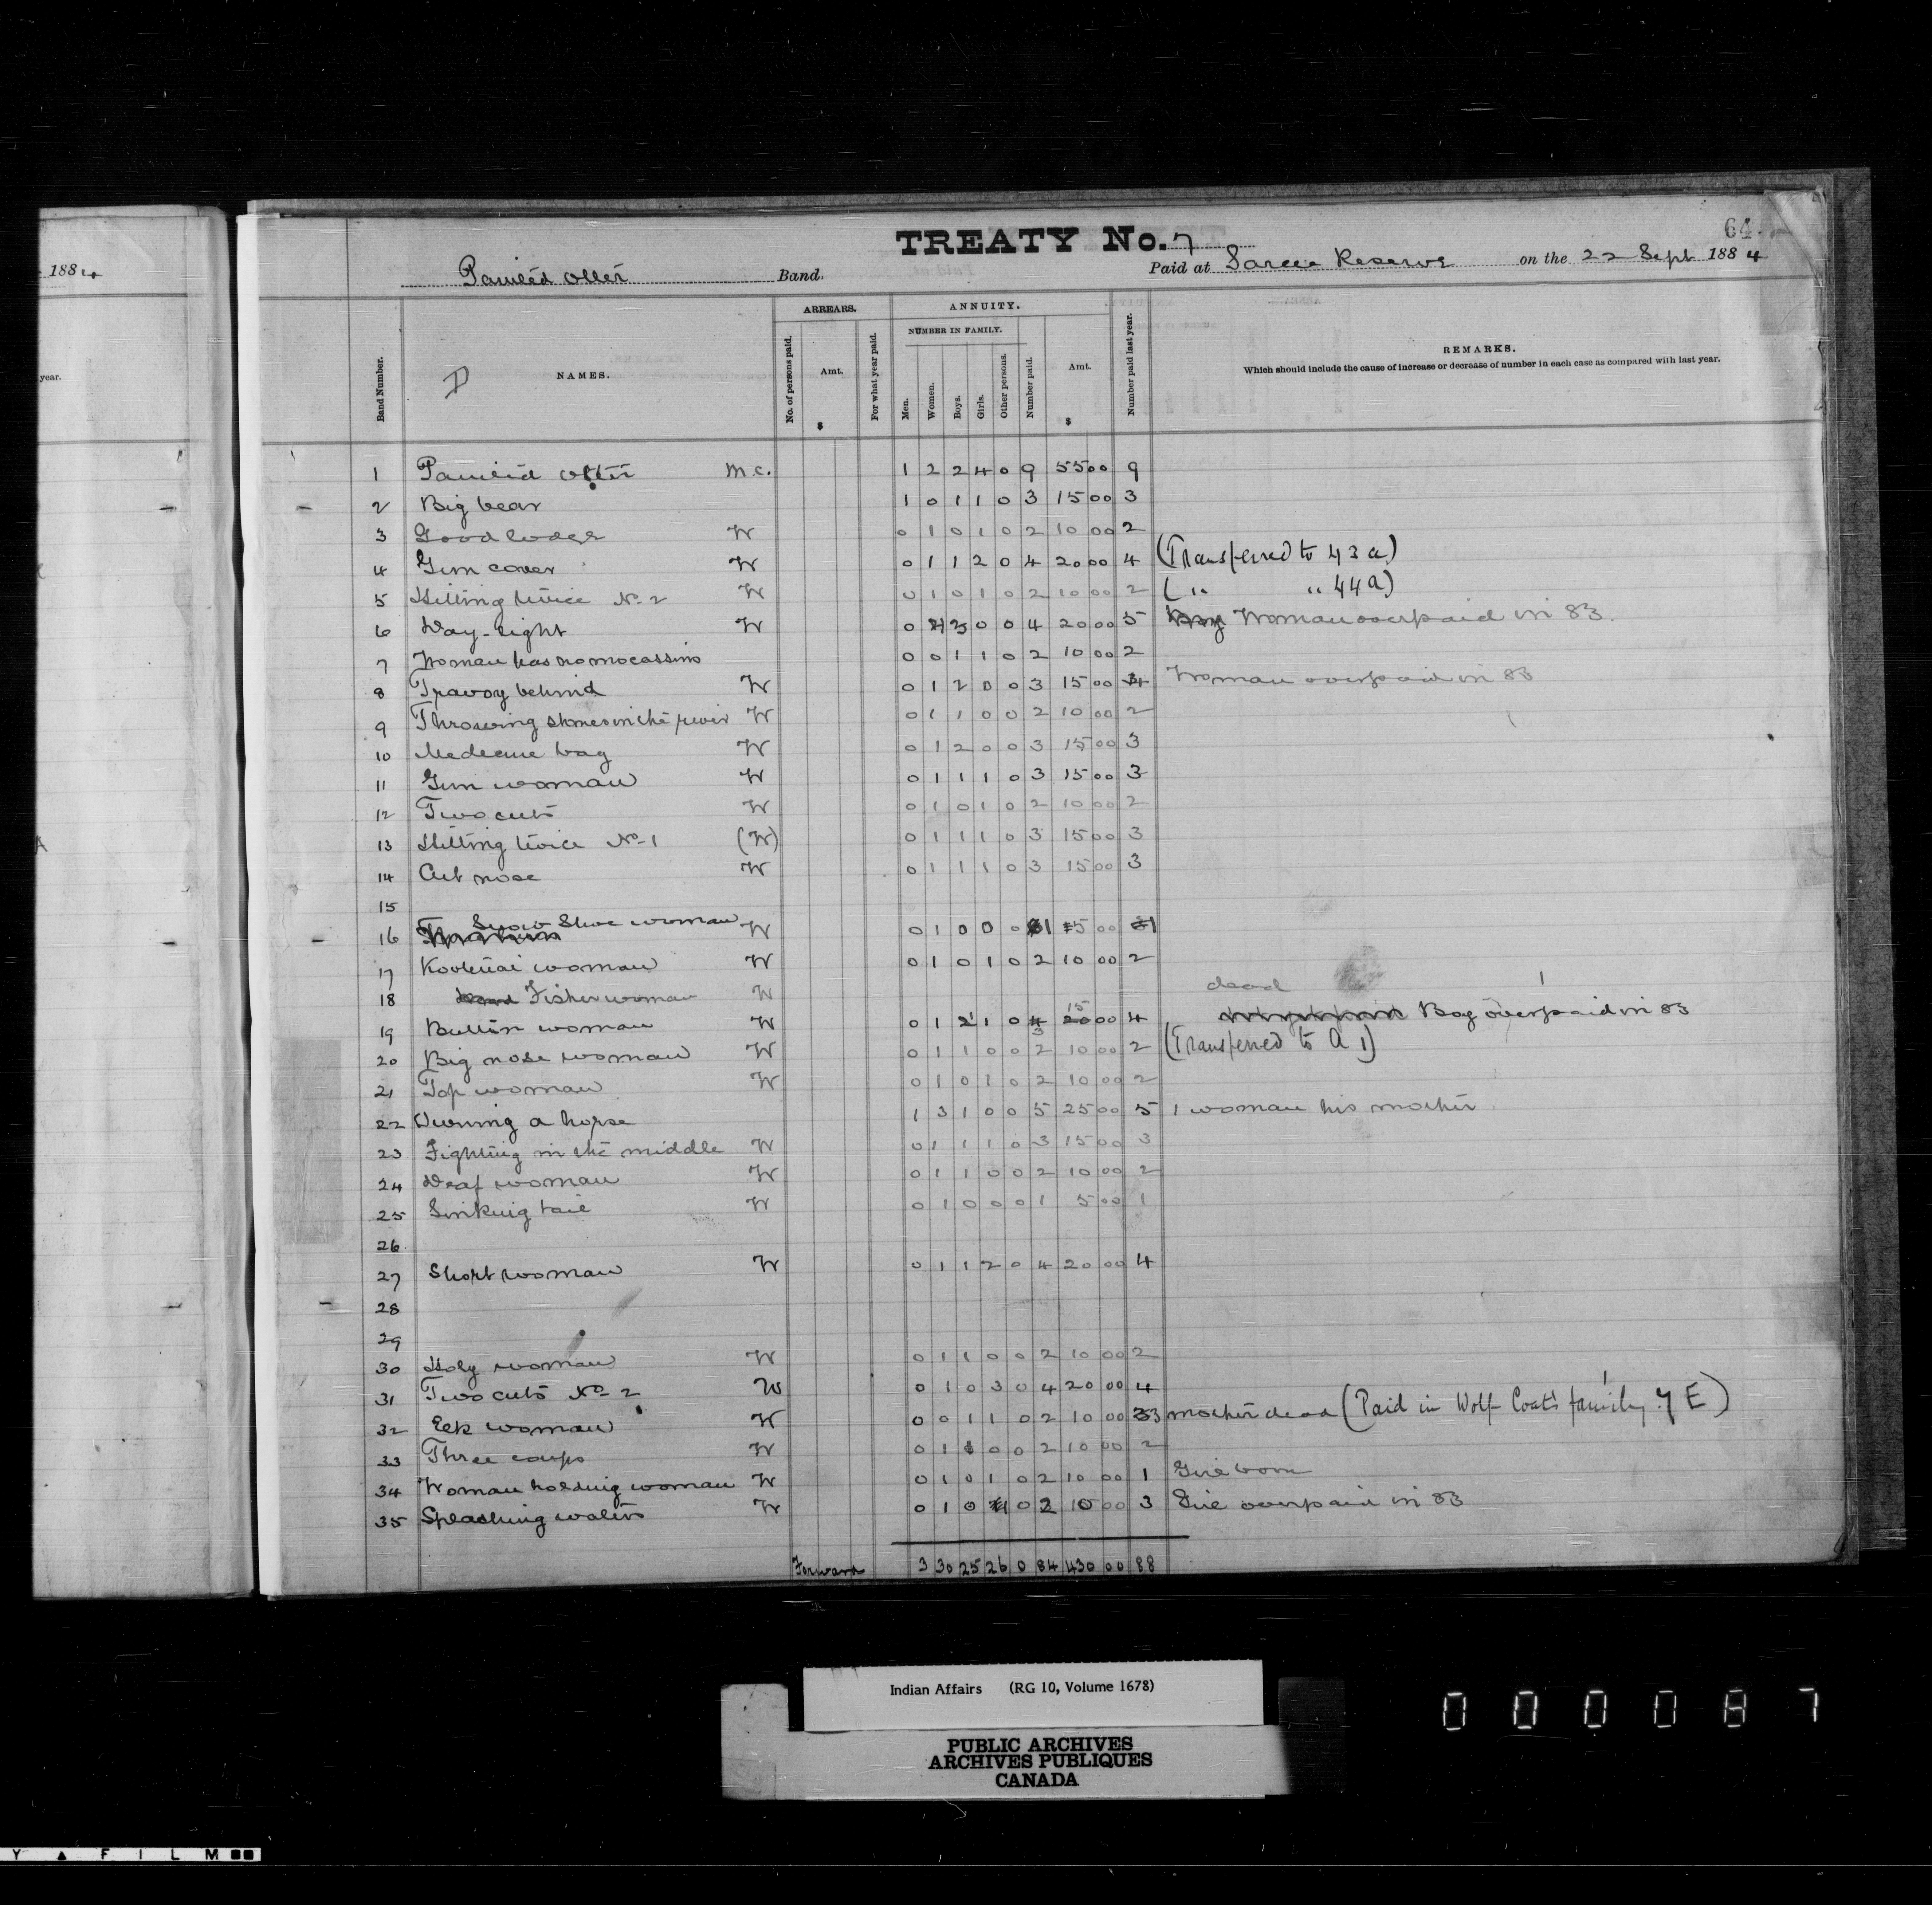 188
year.
64
TREATY No. 7
Painted Otter Band. Paid at Sarcee Reserve on the 22 Sept 1884
Band Number. NAMES. ARREARS. No. of persons paid. Amt. $ For what year paid. ANNUITY. NUMBER IN FAMILY. Men. Women. Boys. Girls. Other persons. Number paid. Amt. $ Number paid last year. REMARKS.
Which should include the cause of increase or decrease of number in each case as compared with last year.
1 Painted Otter M.C. 1 2 2 4 0 9 55 00 9
2 Big bear 1 0 1 1 0 3 15 00 3
3 Good lodge W 0 1 0 1 0 2 10 00 2
4 Gun cover W 0 1 1 2 0 4 20 00 4 (Transferred to 43 a)
5 Hitting twice No. 2 W 0 1 0 1 0 2 10 00 2 ( " " 44 a)
6 Day-light W 0 1 3 0 0 4 20 00 5 Woman overpaid in 83.
7 Woman has no mocassins 0 0 1 1 0 2 10 00 2
8 Travoy behind W 0 1 2 0 0 3 15 00 4 Woman overpaid in 83
9 Throwing stones in the river W 0 1 1 0 0 2 10 00 2
10 Medecine bag W 0 1 2 0 0 3 15 00 3
11 Gun woman W 0 1 1 1 0 3 15 00 3
12 Two cuts W 0 1 0 1 0 2 10 00 2
13 Hitting twice No. 1 (W) 0 1 1 1 0 3 15 00 3
14 Cut nose W 0 1 1 1 0 3 15 00 3
15
16 Snow Shoe woman W 0 1 0 0 0 1 5 00 1
17 Kootenai woman W 0 1 0 1 0 2 10 00 2
18 Fisher woman W dead
19 Button woman W 0 1 1 1 0 3 15 00 4 Boy overpaid in 83
20 Big nose woman W 0 1 1 0 0 2 10 00 2 (Transferred to A 1)
21 Top woman W 0 1 0 1 0 2 10 00 2
22 Owning a horse 1 3 1 0 0 5 25 00 5 1 woman his mother
23 Fighting in the middle W 0 1 1 1 0 3 15 00 3
24 Deaf woman W 0 1 1 0 0 2 10 00 2
25 tail W 0 1 0 0 0 1 5 00 1
26
27 Short woman W 0 1 1 2 0 4 20 00 4
28
29
30 Holy woman W 0 1 1 0 0 2 10 00 2
31 Two cuts No. 2 W 0 1 0 3 0 4 20 00 4
32 Elk woman W 0 0 1 1 0 2 10 00 3 mother dead (Paid in Wolf Coat's family. 7 E)
33 Three coups W 0 1 1 0 0 2 10 00 2
34 Woman holding woman W 0 1 0 1 0 2 10 00 1 Girl born
35 Splashing water W 0 1 0 1 0 2 10 00 3 Girl overpaid in 83
Forward 3 30 25 26 0 84 430 00 88
Indian Affairs (RG 10, Volume 1678)
PUBLIC ARCHIVES
ARCHIVES PUBLIQUES
CANADA
000087
Y ▲ F I L M